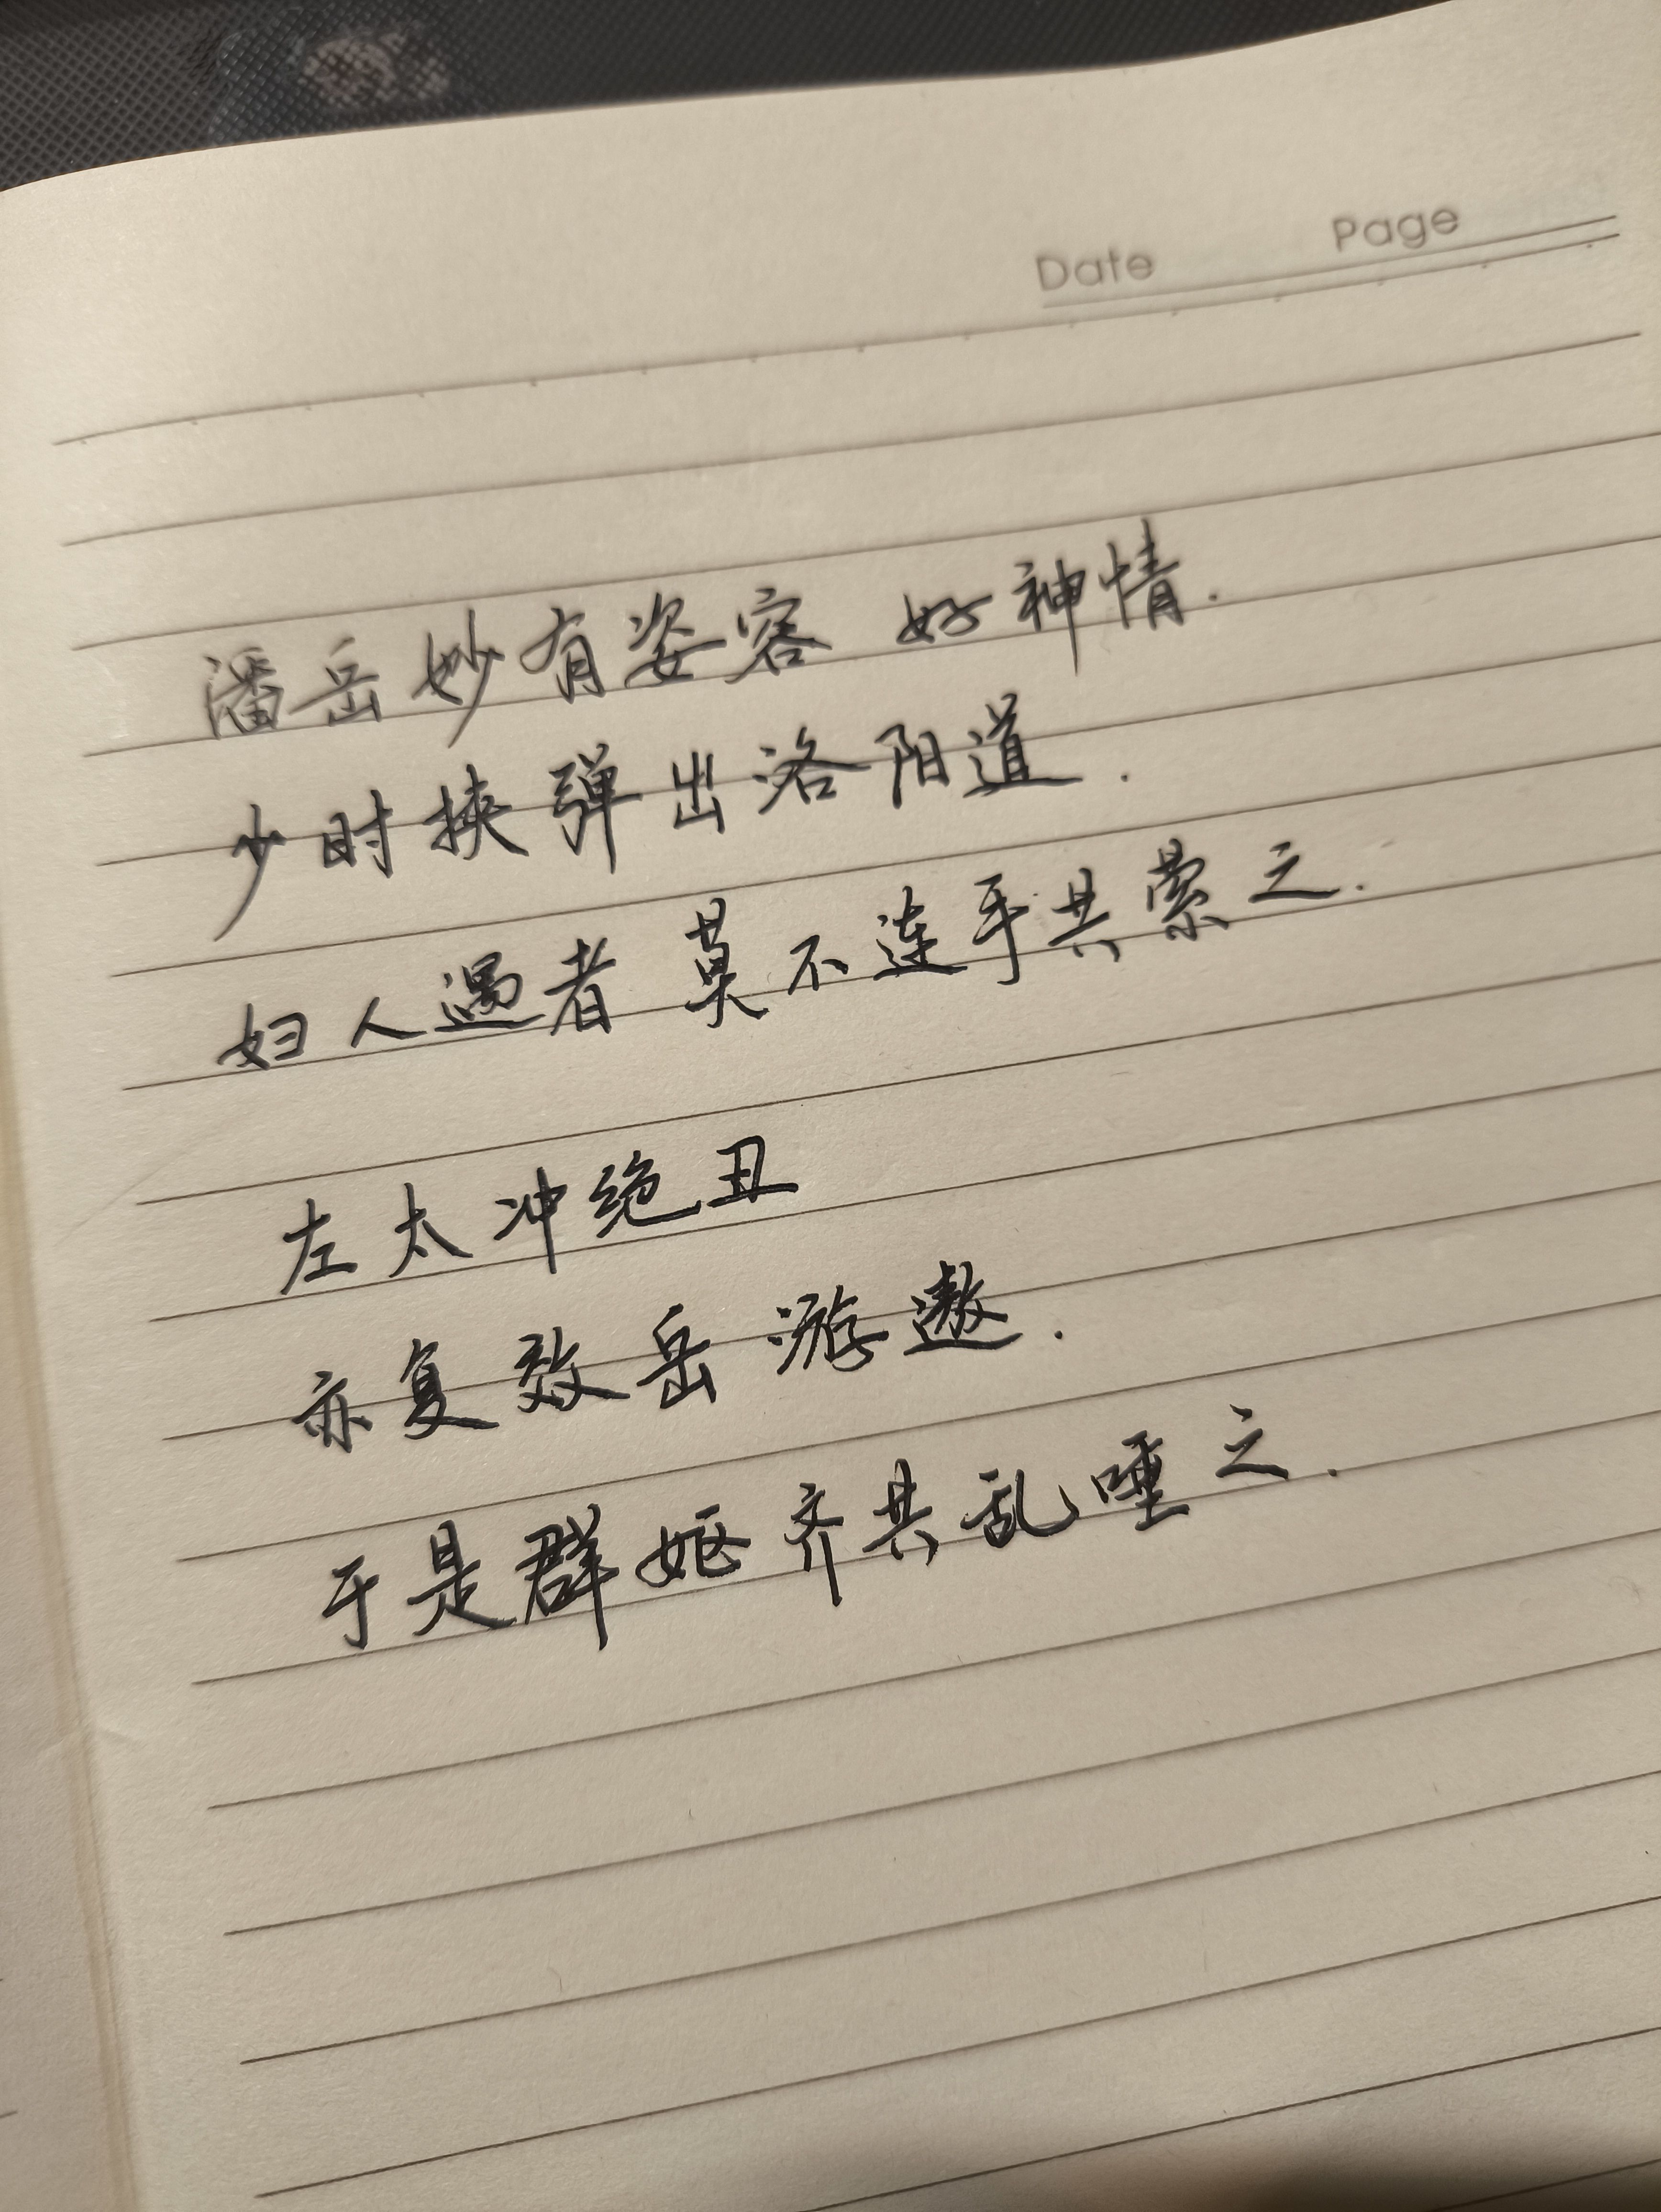 Date Page
潘岳妙有姿容 好神情.
少时挟弹出洛阳道.
妇人遇者 莫不连手共萦之.
左太冲绝丑
亦复效岳游遨.
于是群妪齐共乱唾之.